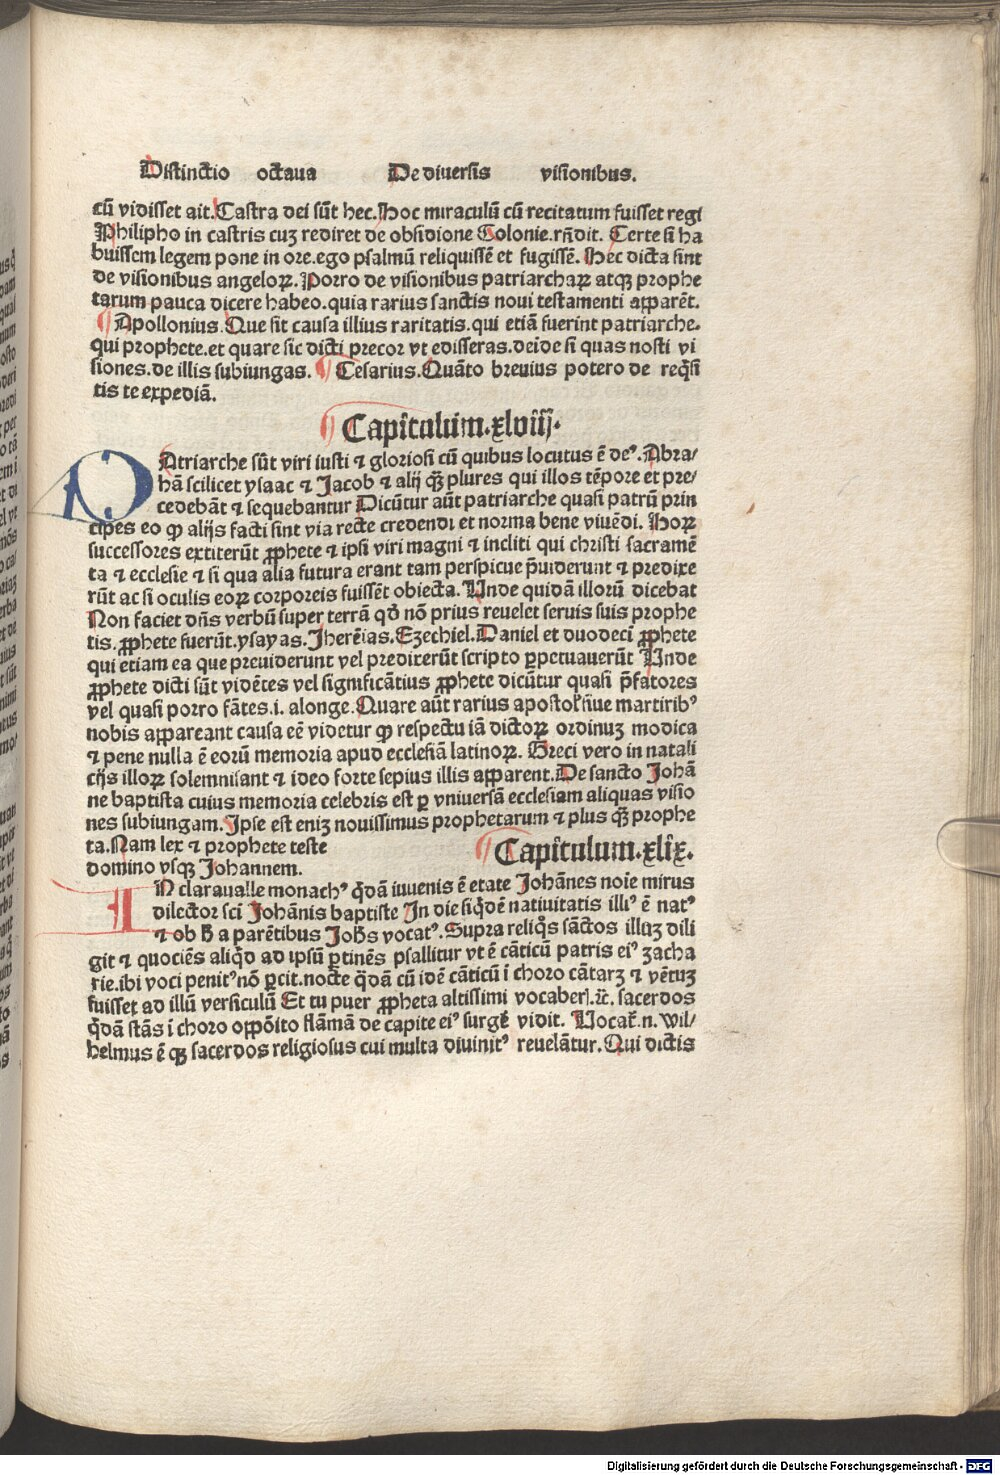 Distinctio octaua De diuersis visionibus.
cū vidisset ait. Castra dei sūt hec. Hoc miraculū cū recitatum fuisset regi
Philipho in castris cuz rediret de obsidione Colonie. rn̄dit. Certe si ha
buissem legem pone in ore. ego psalmū reliquissē et fugissē. Hec dicta sint
de visionibus angeloꝝ. Porro de visionibus patriarchaꝝ atqꝫ prophe
tarum pauca dicere habeo. quia rarius sanctis noui testamenti apparēt.
¶ Apollonius. Que sit causa illius raritatis. qui etiā fuerint patriarche.
qui prophete. et quare sic dicti precor vt edisseras. deīde si quas nosti vi
siones. de illis subiungas. ¶ Cesarius. Quāto breuius potero de req̄si
tis te expediā.
¶ Capitulum. xlviij.
PAtriarche sūt viri iusti ⁊ gloriosi cū quibus locutus ē deꝰ. Abra/
hā scilicet ysaac ⁊ Jacob ⁊ alij qꝫ plures qui illos tēpore et pre/
cedebāt ⁊ sequebantur Dicūtur aūt patriarche quasi patrū prin
cipes eo ꝙ alijs facti sint via recte credendi et norma bene viuēdi. Hoꝝ
successores extiterūt ꝓphete ⁊ ipsi viri magni ⁊ incliti qui christi sacramē
ta ⁊ ecclesie ⁊ si qua alia futura erant tam perspicue p̄uiderunt ⁊ predixe
rūt ac si oculis eoꝝ corporeis fuissēt obiecta. Unde quidā illorū dicebat
Non faciet dn̄s verbū super terrā qd̓ nō prius reuelet seruis suis prophe
tis. ꝓphete fuerūt. ysayas. Jherēias. Ezechiel. Daniel et duodecī ꝓphete
qui etiam ea que preuiderunt vel predixerūt scripto ꝑpetuauerūt Unde
ꝓphete dicti sūt vidētes vel significātius ꝓphete dicūtur quasi p̄fatores
vel quasi porro fātes. i. alonge. Quare aūt rarius apostoꝉ siue martiribꝰ
nobis appareant causa eē videtur ꝙ respectu iā dictoꝝ ordinuz modica
⁊ pene nulla ē eorū memoria apud ecclesiā latinoꝝ. Greci vero in natali
cijs illoꝝ solemnisant ⁊ ideo forte sepius illis apparent. De sancto Johā
ne baptista cuius memoria celebris est ꝑ vniuersā ecclesiam aliquas visio
nes subiungam. Ipse est eniz nouissimus prophetarum ⁊ plus qꝫ prophe
ta. Nam lex ⁊ prophete teste
domino vsqꝫ Johannem.
¶ Capitulum. xlix.
IN claraualle monachꝰ q̄dā iuuenis ē etate Johānes noīe mirus
dilector sci̅ Johānis baptiste In die siq̄dē natiuitatis illiꝰ ē natꝰ
⁊ ob h̄ a parētibus Joh̄s vocatꝰ. Supra reliq̄s sāctos illuz dili
git ⁊ quociēs aliq̄d ad ipsū ꝑtinēs psallitur vt ē cāticū patris eiꝰ zacha
rie. ibi voci penitꝰ nō ꝑcit. nocte q̄dā cū idē cāticū ī choro cātarz ⁊ vētuz
fuisset ad illū versiculū Et tu puer ꝓpheta altissimi vocaberꝭ. ⁊c̄. sacerdos
q̄dā stās ī choro oppōito flāmā de capite eiꝰ surgē vidit. Uocat̄. n. wil/
helmus ē qꝫ sacerdos religiosus cui multa diuinitꝰ reuelātur. Qui dictis
Digitalisierung gefördert durch die Deutsche Forschungsgemeinschaft - DFG